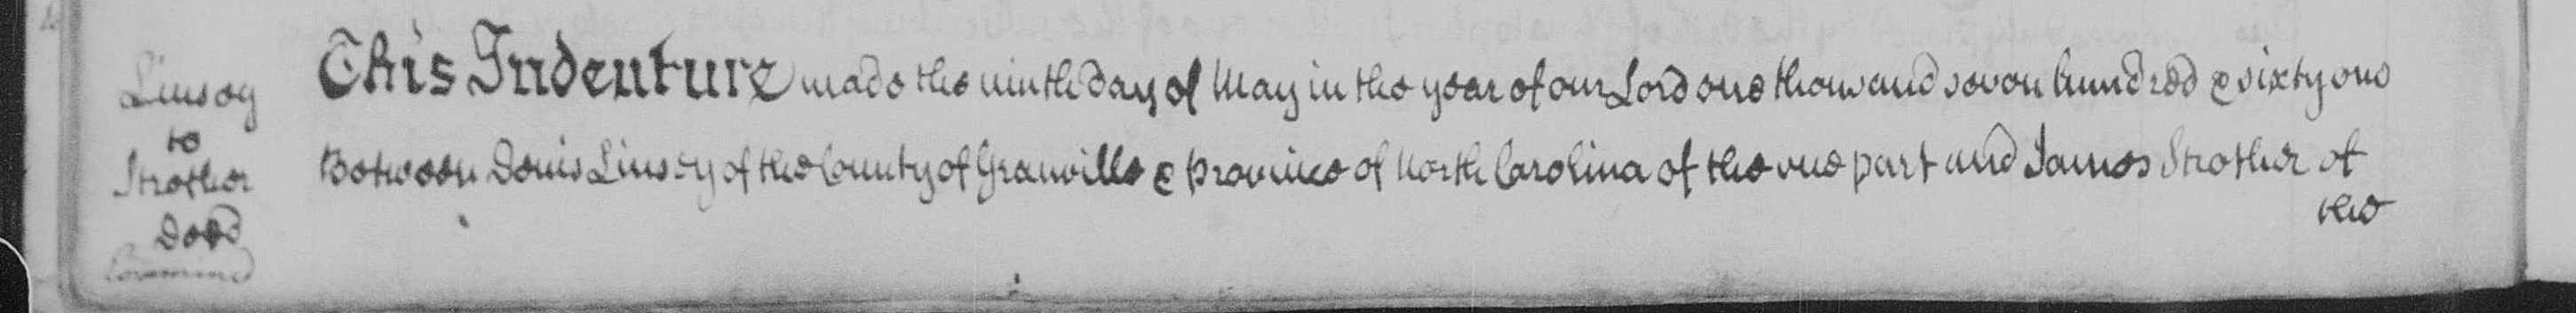 Linsey
to
Strother
Deed
Examined
This Indenture made the ninth day of May in the year of our Lord one thousand seven hundred & sixty one
Between Denis Linsey of the County of Granville & province of North Carolina of the one part and James Strother of
the